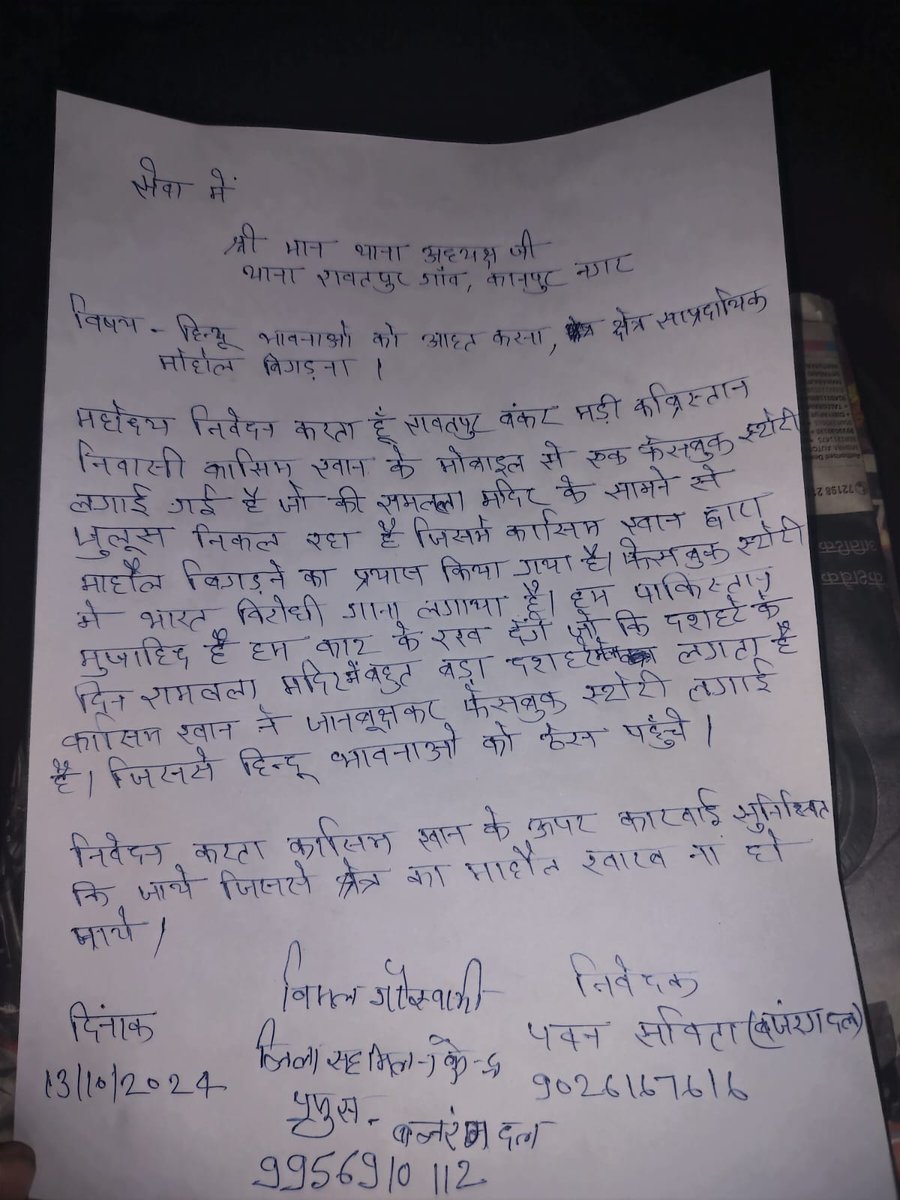 सेवा में
श्री मान थाना अध्यक्ष जी
थाना रावतपुर गाँव, कानपुर नगर
विषय - हिन्दू भावनाओ को आहत करना, क्षेत्र साप्रदायिक
मोहोल बिगड़ना ।
महोदय निवेदन करता हूँ रावतपुर बंकर मड़ी कब्रिस्तान
निवासी कासिम खान के मोबाइल से एक फेसबुक स्टोरी
लगाई गई है जो की रामलला मंदिर के सामने से
जुलूस निकल रहा है जिसमे कासिम खान द्वारा
माहौल बिगड़ने का प्रयास किया गया है। फेसबुक स्टोरी
मे भारत विरोधी गाना लगाया है। हम पाकिस्तान
मुजाहिद है हम काट के रख देंगे जो कि दशहरे के
दिन रामलला मंदिर में बहुत बड़ा दशहरा लगता है
कासिम खान ने जानबूझकर फेसबुक स्टोरी लगाई
है। जिससे हिन्दू भावनाओ को ठेस पहुँचे।
निवेदन करता कासिम खान के ऊपर कारवाई सुनिश्चित
कि जाये जिससे क्षेत्र का माहौल खराब ना हो
जाये।
विमल गोस्वामी
निवेदक
दिनांक
जिला सह
पवन सविता (बजरंग दल)
13/10/2024
9026167616
बजरंग दल
9956910112
72198 2